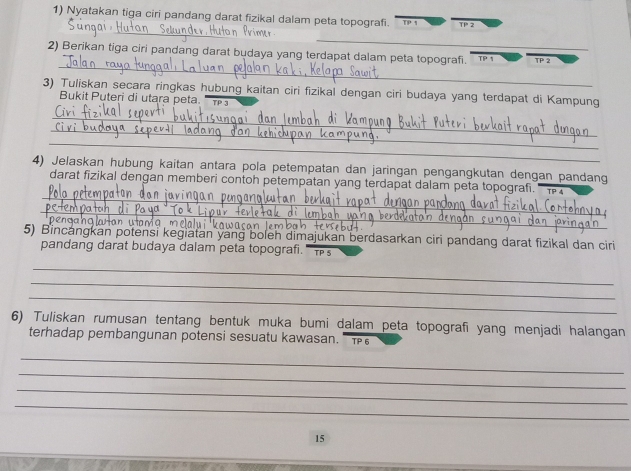 1) Nyatakan tiga ciri pandang darat fizikal dalam peta topografi. TP 1 TP 2
Sungai, Hutan Sekunder, Hutan Primer.
2) Berikan tiga ciri pandang darat budaya yang terdapat dalam peta topografi. TP 1 TP 2
Jalan raya tunggal, Laluan pejalan kaki, Kelapa Sawit
3) Tuliskan secara ringkas hubung kaitan ciri fizikal dengan ciri budaya yang terdapat di Kampung
Bukit Puteri di utara peta. TP 3
Ciri fizikal seperti bukit, sungai dan lembah di Kampung Bukit Puteri berkait rapat dengan
ciri budaya seperti ladang dan kehidupan kampung.
4) Jelaskan hubung kaitan antara pola petempatan dan jaringan pengangkutan dengan pandang
darat fizikal dengan memberi contoh petempatan yang terdapat dalam peta topografi. TP 4
Pola petempatan dan jaringan pengangkutan berkait rapat dengan pandang darat fizikal. Contohnya,
petempatan di Paya Tok Lipur terletak di lembah yang berdekatan dengan sungai dan jaringan
pengangkutan utama melalui kawasan lembah tersebut.
5) Bincangkan potensi kegiatan yang boleh dimajukan berdasarkan ciri pandang darat fizikal dan ciri
pandang darat budaya dalam peta topografi. TP 5
6) Tuliskan rumusan tentang bentuk muka bumi dalam peta topografi yang menjadi halangan
terhadap pembangunan potensi sesuatu kawasan. TP 6
15